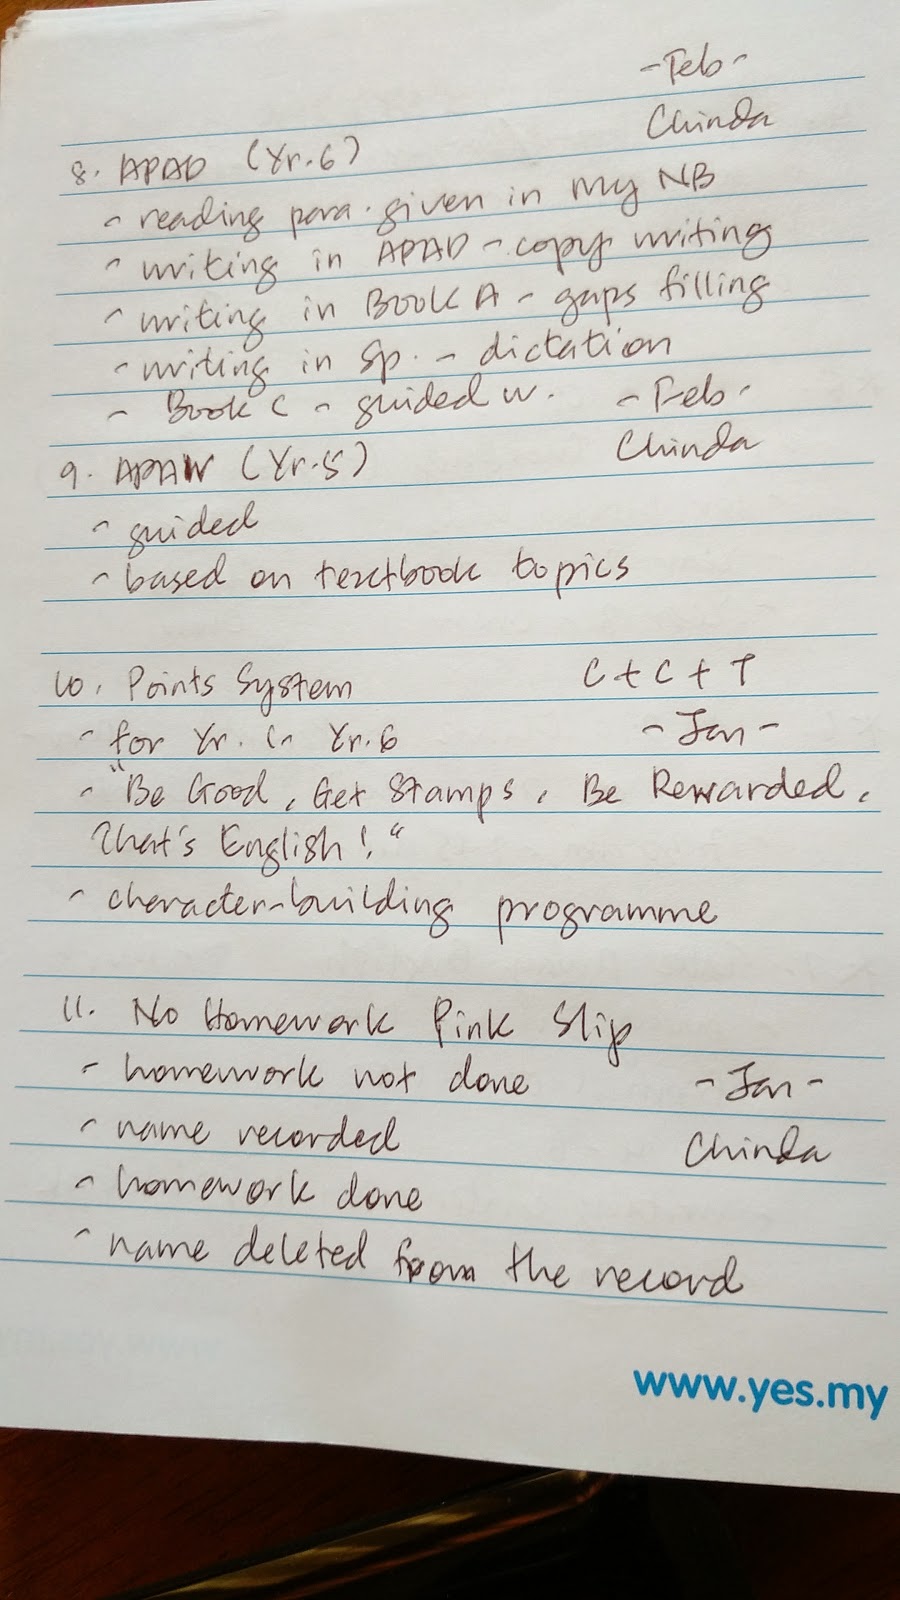 -Feb-
Chinda
8. APAD (Yr.6)
- reading para. given in my NB
- writing in APAD - copy writing
- writing in Book A - gaps filling
- writing in Sp. - dictation
- Book C - guided w. -Feb-
9. APAW (Yr.5) Chinda
- guided
- based on textbook topics
10. Points System C + C + T
- for Yr. 1 - Yr.6 -Jan-
- "Be Good, Get Stamps, Be Rewarded,
That's English!"
- character-building programme
11. No Homework Pink Slip
- homework not done -Jan-
- name recorded Chinda
- homework done
- name deleted from the record
www.yes.my